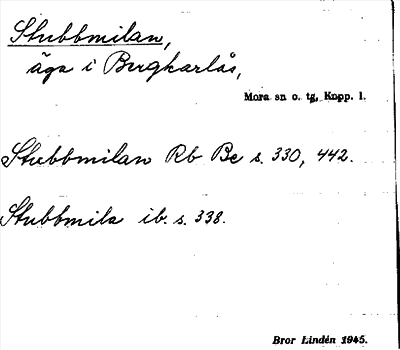 Stubbmilan,
äga i Bergkarlås,
Mora sn o. tg, Kopp. l.
Stubbmilan Rb Be s. 330, 442.
Stubbmila ib. s. 338.
Bror Lindén 1945.